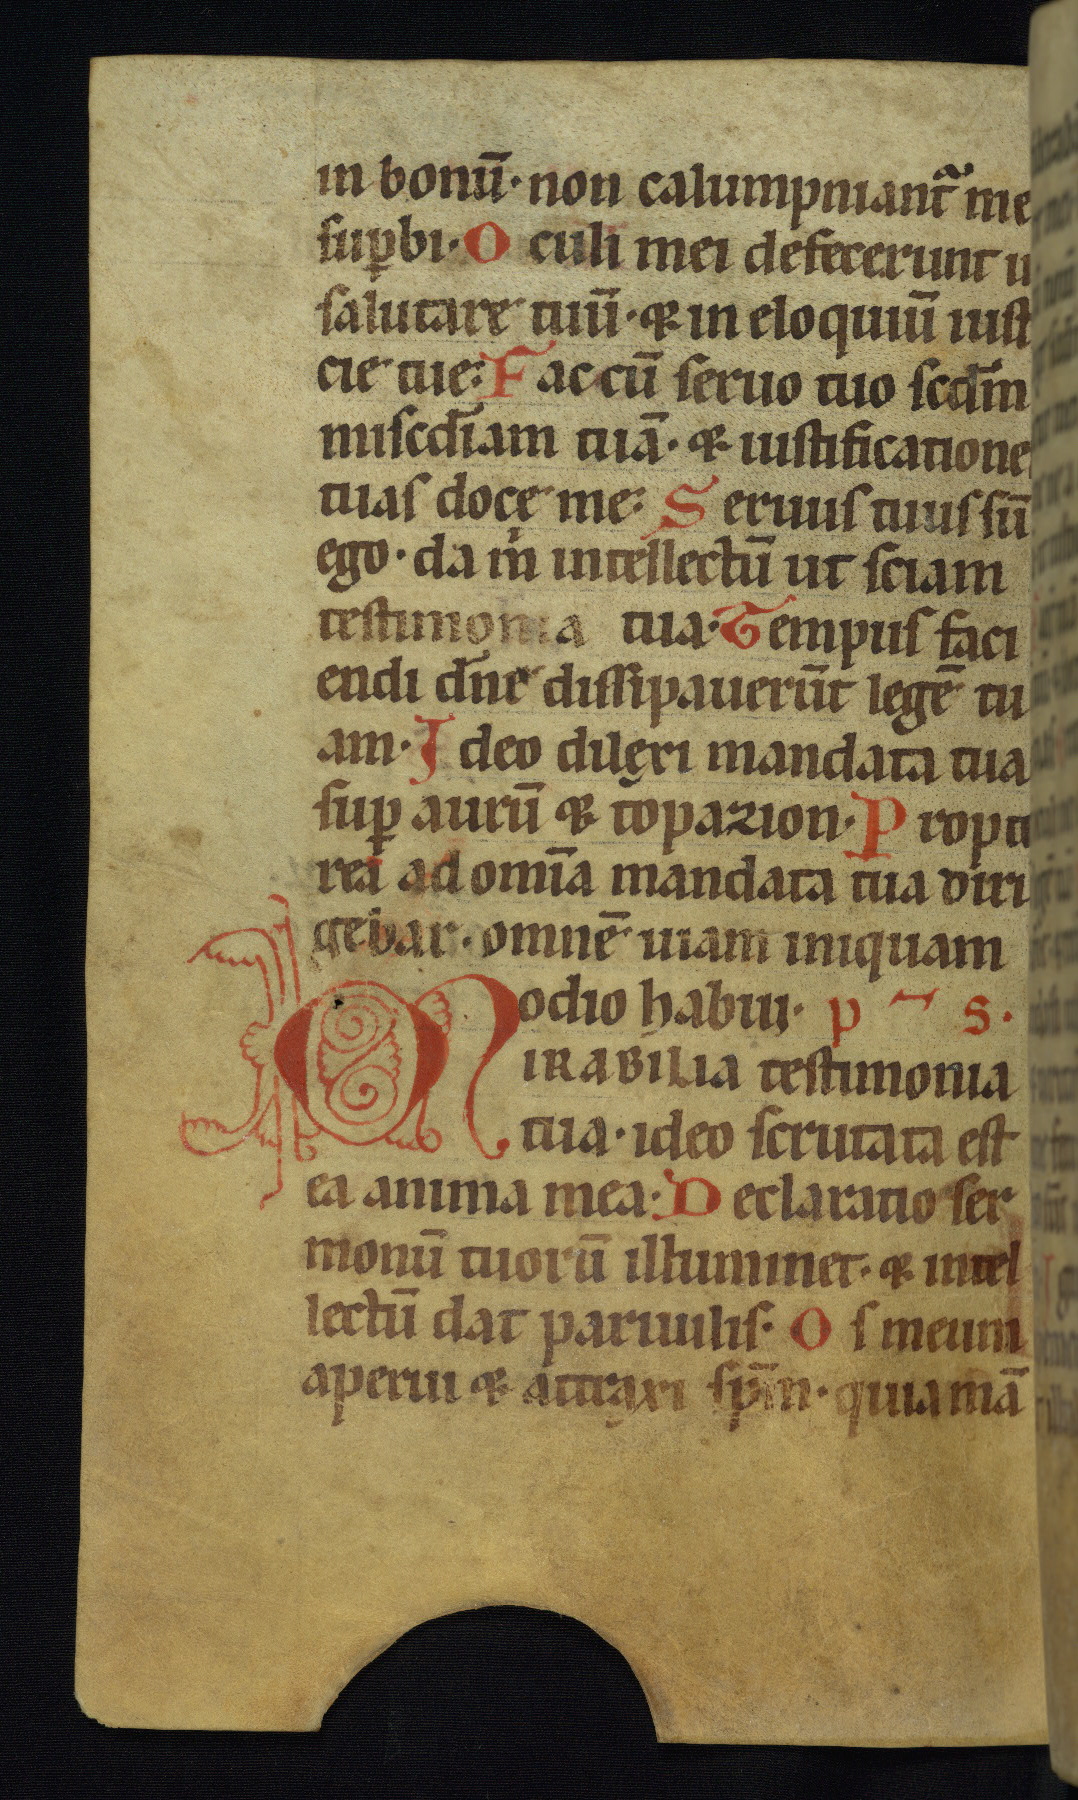 in bonū· non calumpniantᷓ me
suꝑbi· O culi mei defecerunt
salutare tuū· ⁊ in eloquiū iust
cie tue: F ac cū seruo tuo scdm̄
miscdiam̄ tuā· ⁊ iustificatione
tuas doce me: S eruus tuus sū
ego· da m̍ intellectū ut sciam
testimonia tua· Tempus faci
endi dn̄e dissipauerūt legē tu
am· I deo dilexi mandata tua
suꝑ aurū ⁊ topazion· P ropt
rea ad omīa mandata tua diri
gebar· omnē uiam iniquam
odio habui· p ̄ s·
MIRABILIA testimonia
tua· ideo scrutata est
ea anima mea: D eclaratio ser
monū tuorū illuminet· ⁊ intel
lectū dat paruulis· O s meum
aperui ⁊ attraxi sp̄m· quia mā